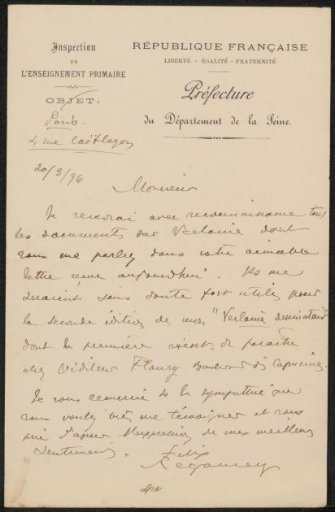 Inspection
DE
L'ENSEIGNEMENT PRIMAIRE
OBJET.
RÉPUBLIQUE FRANÇAISE
LIBERTÉ - ÉGALITÉ - FRATERNITÉ
Préfecture
du Département de la Seine.
Paris.
4 rue Coëtlogon
20/3/96
Monsieur
Je recevrai avec reconnaissance tous
les documents sur Verlaine dont
vous me parlez dans votre aimable
lettre reçue aujourd'hui. Ils me
seraient sans doute fort utiles pour
la seconde édition de mon "Verlaine dessinateur"
dont la première vient de paraître
chez l'éditeur Floury Boulevard des Capucines.
Je vous remercie de la sympathie que
vous voulez bien me témoigner et vous
prie d'agréer l'expression de mes meilleurs
sentiments.
Félix
Régamey